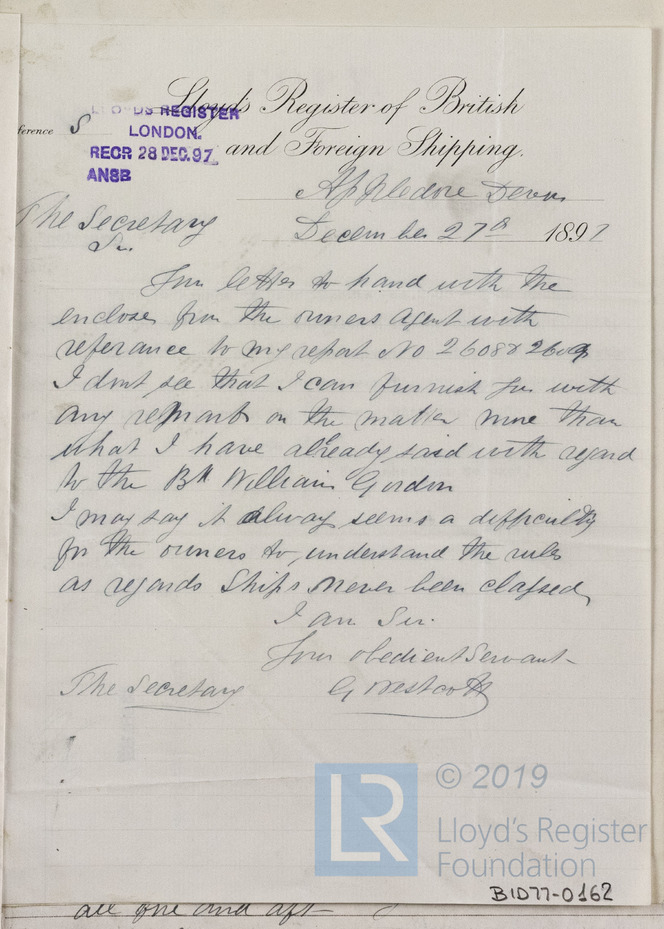 Lloyd's Register of British
and Foreign Shipping.
LLOYD'S REGISTER
LONDON.
RECR 28 DEC. 97
ANSB
ference S
Appledore Devon
The Secretary
December 27th 1897
Sir
Your letter to hand with the
encloses from the owners Agent with
referance to my report No 2608 & 2609
I dont see that I can furnish you with
any remark on the matter more than
what I have already said with regard
to the Bk William Gordon
I may say it alway seems a difficulty
for the owners to, understand the rules
as regards Ships never been classed,
I am Sir.
Your obedient Servant
The Secretary
G Westcott
© 2019
LR
Lloyd's Register
Foundation
BID77-0162
all fore and aft